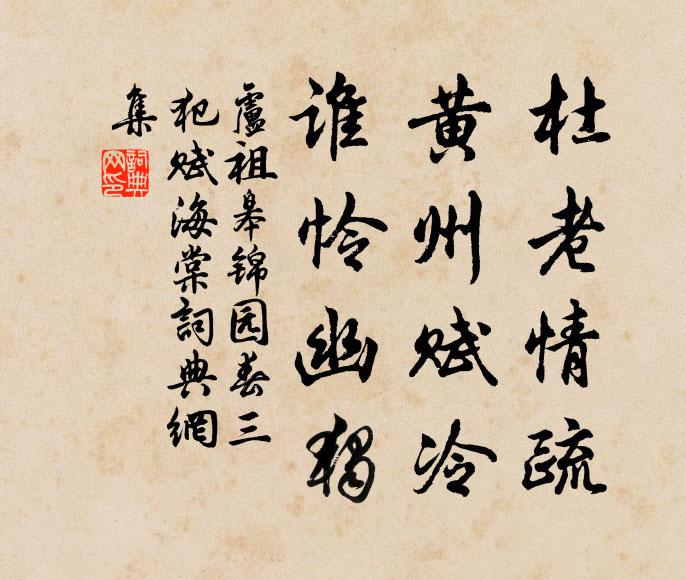 杜老情疏
黄州赋冷
谁怜幽独
盧祖皋锦园春三
犯赋海棠詞典網
集
詞典网印